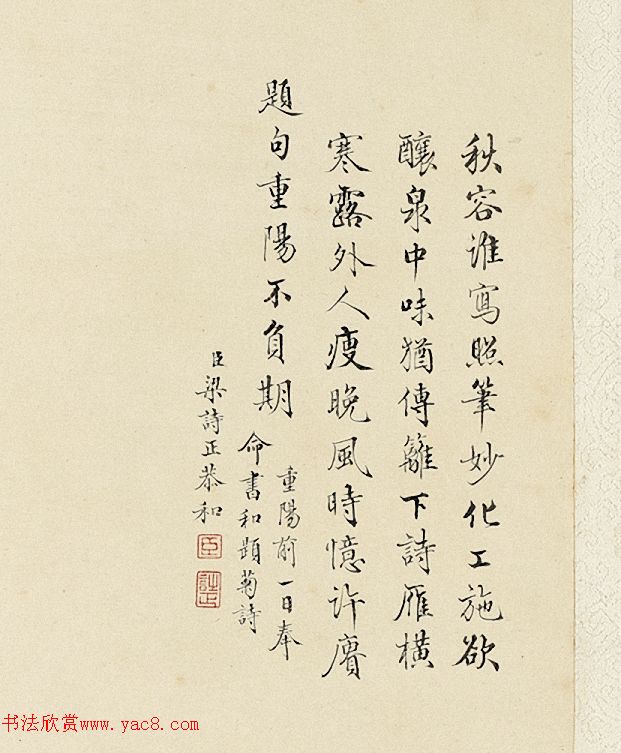 秋容誰寫照筆妙化工施欲
釀泉中味猶傳籬下詩雁橫
寒露外人瘦晚風時憶許賡
題句重陽不負期
重陽前一日奉
命書和題菊詩
臣梁詩正恭和
臣
詩正
书法欣赏www.yac8.com